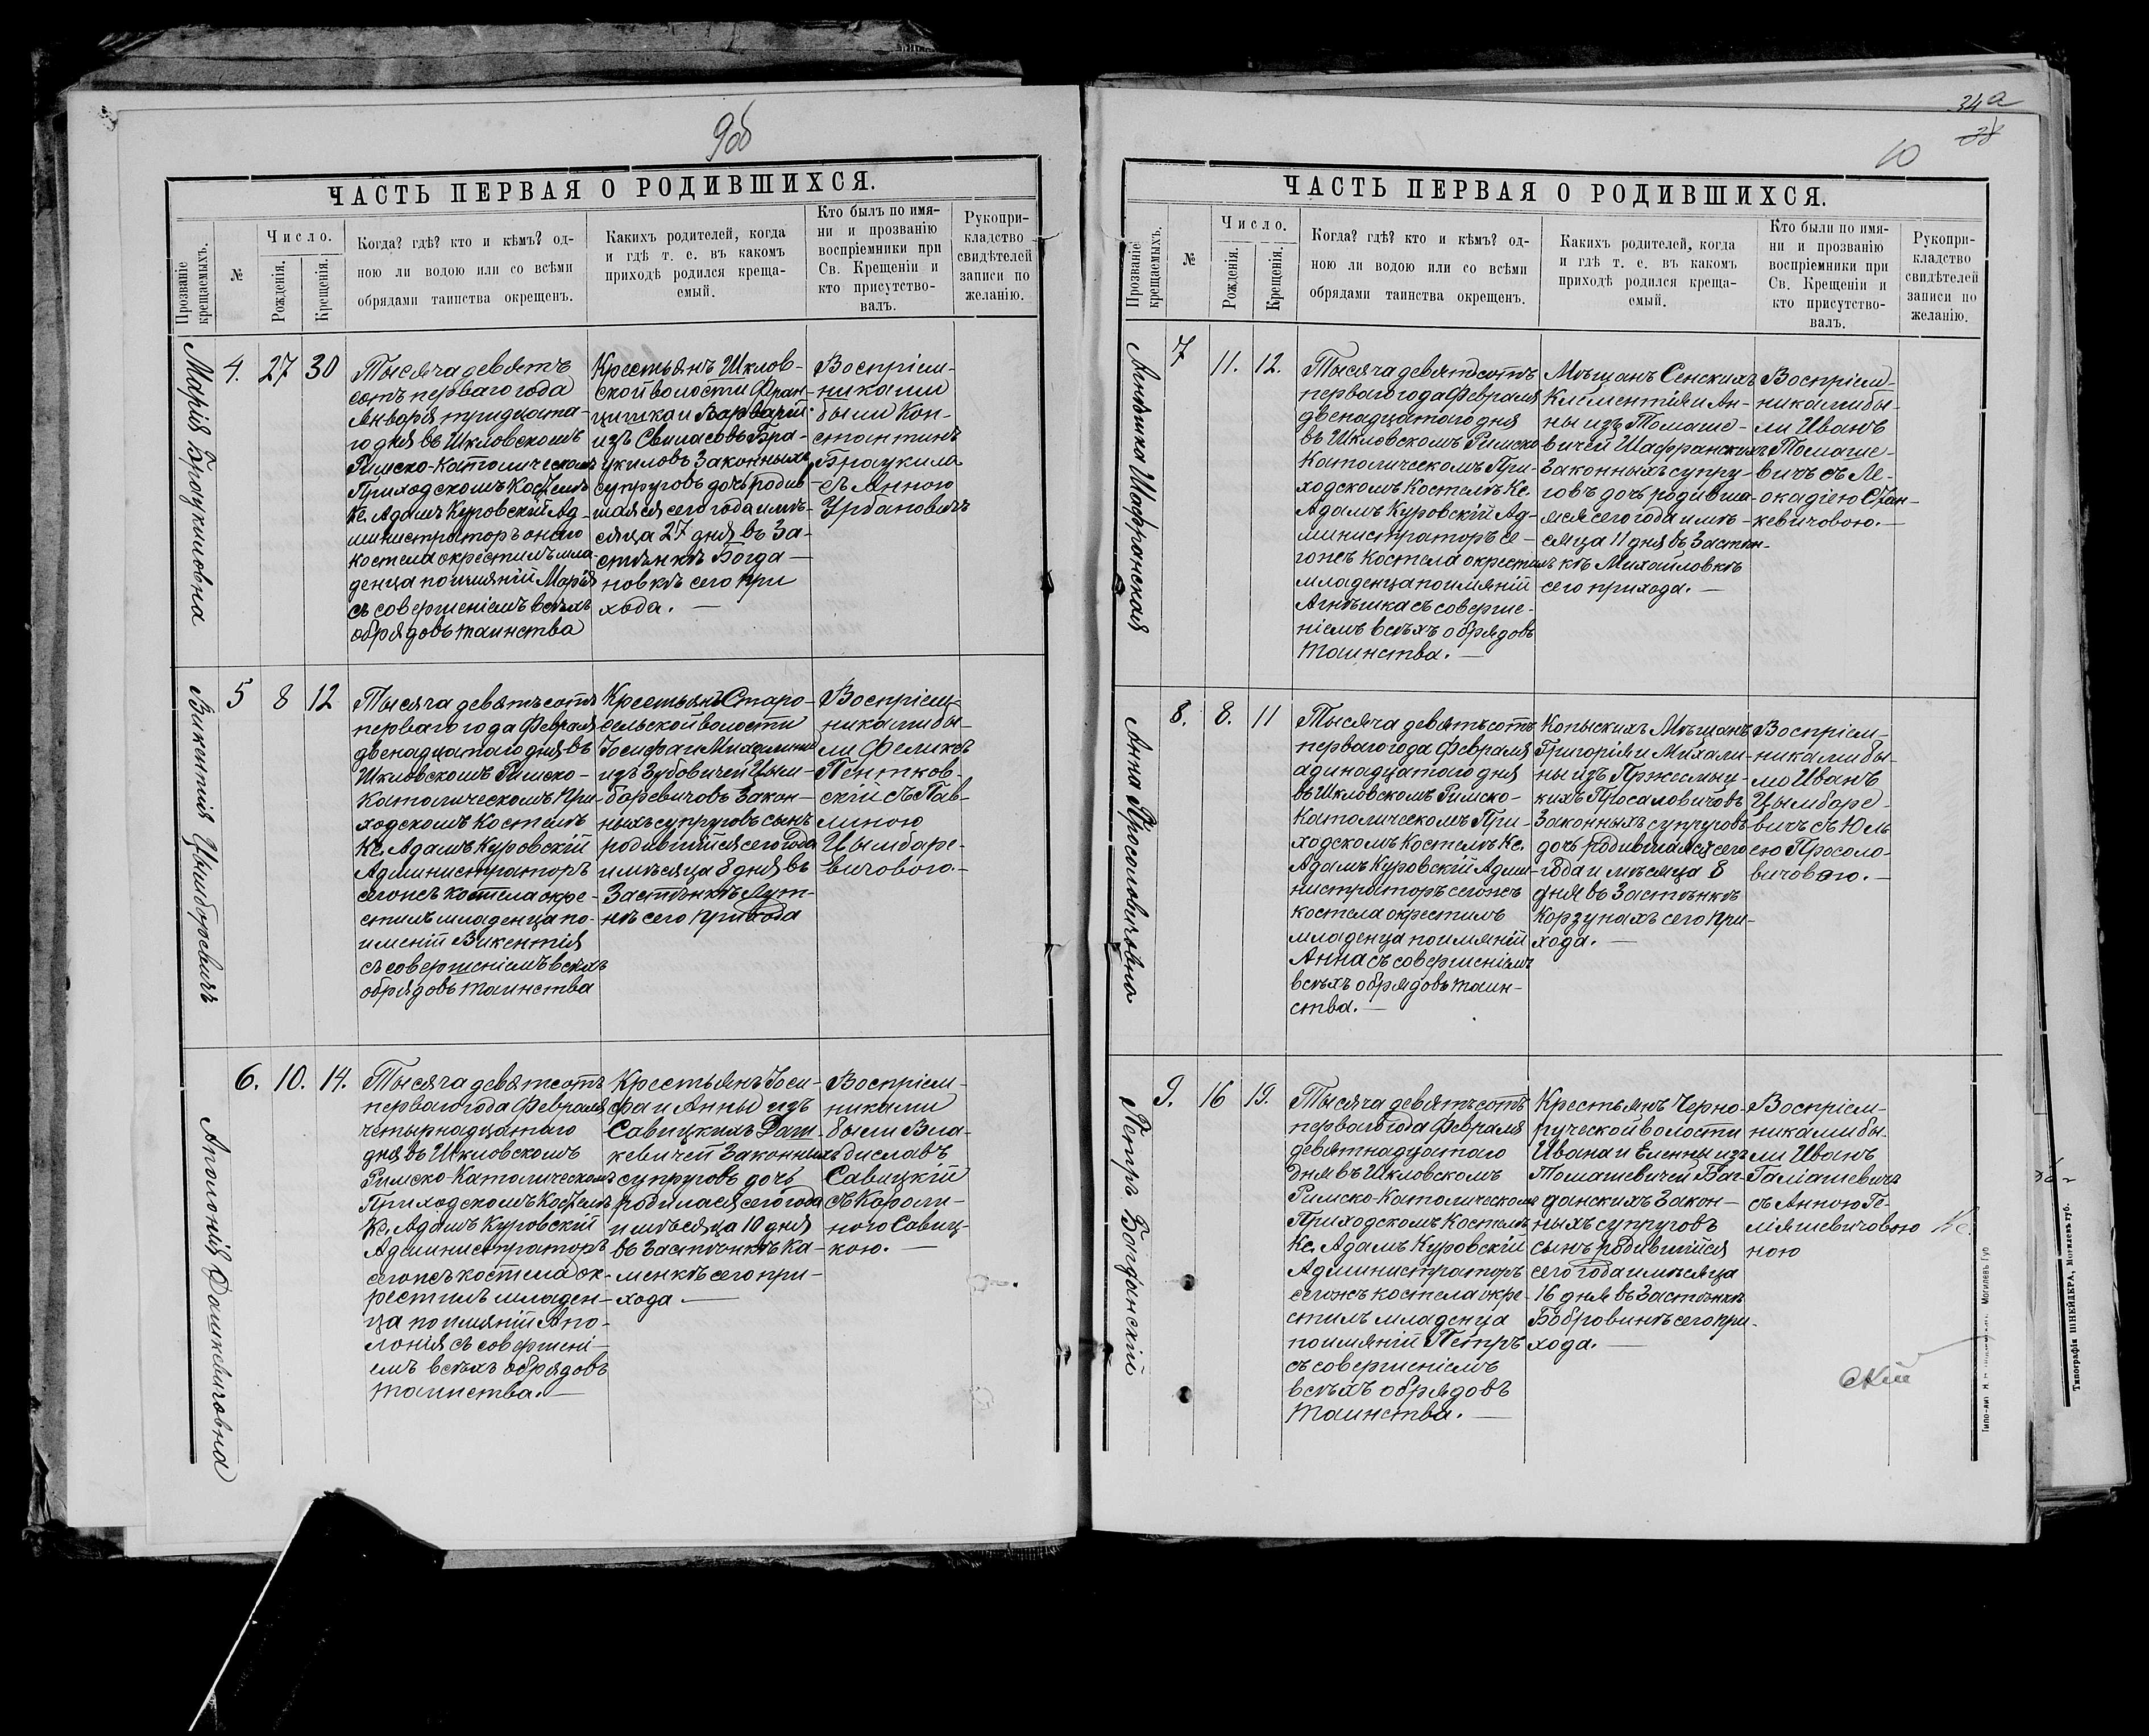 9об
ЧАСТЬ ПЕРВАЯ О РОДИВШИХСЯ.
Прозваніе крещаемыхъ.
№
Число.
Рожденія.
Крещенія.
Когда? гдѣ? кто и кѣмъ? од-
ною ли водою или со всѣми
обрядами таинства окрещенъ.
Какихъ родителей, когда
и гдѣ т. е. въ какомъ
приходѣ родился креща-
емый.
Кто былъ по имя-
ни и прозванію
воспріемники при
Св. Крещеніи и
кто присутство-
валъ.
Рукопри-
кладство
свидѣтелей
записи по
желанію.
Марія Браукиловна
4. 27 30
Тысяча девять
сотъ перваго года
Января тридцата-
го дня въ Шкловскомъ
Римско-Католическомъ
Приходскомъ Костелѣ
Кс. Адамъ Куровскій Ад-
министраторъ онаго
костела окрестилъ мла-
денца по имяній Марія
съ совершеніемъ всѣхъ
обрядовъ таинства
Крестьянъ Шклов-
ской волости Фран-
цишка и Варварій
изъ Свиласовъ Бра-
укиловъ Законныхъ
супруговъ дочь родив-
шаяся сего года и мѣ-
сяца 27 дня въ За-
стѣнкѣ Богда-
новкѣ сего при
хода. —
Воспріем-
никами
были Кон-
стантинъ
Браукила
съ Анною
Урбановичъ
Викентій Цымборевичъ
5 8 12
Тысяча девятьсотъ
перваго года Февраля
двенадцатаго дня въ
Шкловскомъ Римско-
Католическомъ При-
ходскомъ Костелѣ
Кс. Адамъ Куровскій
Администраторъ
сегожъ костела окре-
стилъ младенца по-
имений Викентія
съ совершеніемъ всѣхъ
обрядовъ таинства
Крестьянъ Старо-
сельской волости
Іосифа и Михалины
изъ Зубовичей Цым-
боревичовъ Закон-
ныхъ супруговъ сынъ
родившійся сего года
и мѣсяца 8 дня въ
Застѣнкѣ Лут-
нѣ сего прихода
Воспріем-
никами бы-
ли Феликсъ
Пентков-
скій съ Пав-
линою
Цымборе-
вичовою.-
Аполонія Дашкевичовна
6. 10. 14.
Тысяча девятсотъ
перваго года Февраля
четырнадцатаго
дня въ Шкловскомъ
Римско-Католическомъ
Приходскомъ Костелѣ
Кс. Адамъ Куровскій
Администраторъ
сегожъ костела ок-
рестилъ младен-
ца по имяній Апо-
лонія съ совершені-
емъ всѣхъ обрядовъ
таинства. —
Крестьянъ Іоси-
фа и Анны изъ
Савицкихъ Даш-
кевичей Законныхъ
супруговъ дочь
родилася сего года
и мѣсяца 10 дня
въ Застѣнкѣ Ка-
менкѣ сего при-
хода —
Воспріем-
никами
были Вла-
диславъ
Савицкій
съ Кароли-
ною Савиц-
кою. —
34а
10
ЧАСТЬ ПЕРВАЯ О РОДИВШИХСЯ.
Прозваніе крещаемыхъ.
№
Число.
Рожденія.
Крещенія.
Когда? гдѣ? кто и кѣмъ? од-
ною ли водою или со всѣми
обрядами таинства окрещенъ.
Какихъ родителей, когда
и гдѣ т. е. въ какомъ
приходѣ родился креща-
емый.
Кто были по имя-
ни и прозванію
воспріемники при
Св. Крещеніи и
кто присутство-
валъ.
Рукопри-
кладство
свидѣтелей
записи по
желанію.
Агнѣшка Шафранская
7 11. 12.
Тысяча девятьсотъ
перваго года Февраля
двенадцатаго дня
въ Шкловскомъ Римско
Католическомъ При-
ходскомъ Костелѣ Кс.
Адамъ Куровскій Ад-
министраторъ се-
гожъ Костела окрестилъ
младенца по имяній
Агнѣшка съ соверше-
ніемъ всѣхъ обрядовъ
таинства. —
Мѣщанъ Сенскихъ
Клементія и Ан-
ны изъ Томаше-
вичей Шафранскихъ
Законныхъ супру-
говъ дочь родивша-
яся сего года и мѣ-
сяца 11 дня въ Застен-
кѣ Михайловкѣ
сего прихода. —
Воспріем-
никами бы-
ли Иванъ
Томаше-
вичъ съ Ле-
окадіею Стан-
кевичовою. —
Анна Просоловичовна
8. 8. 11
Тысяча девятьсотъ
перваго года Февраля
адинадцатаго дня
въ Шкловскомъ Римско-
Католическомъ При-
ходскомъ Костелѣ Кс.
Адамъ Куровскій Адми-
нистраторъ сегожъ
костела окрестилъ
младенца по имяній
Анна съ совершеніемъ
всѣхъ обрядовъ таин-
ства. —
Копыскихъ Мѣщанъ
Григорія и Михали-
ны изъ Пржесмыц-
кихъ Просаловичовъ
Законныхъ супруговъ
дочь родившаяся сего
года и мѣсяца 8
дня въ Застѣнкѣ
Корзунахъ сего При-
хода. —
Воспріем-
никами бы-
ли Иванъ
Цымборе-
вичъ съ Юль
ею Просоло-
вичовою. —
Петръ Багданскій
9. 16 19.
Тысяча девятьсотъ
перваго года Февраля
девятнадцатаго
дня въ Шкловскомъ
Римско-Католическомъ
Приходскомъ Костелѣ
Кс. Адамъ Куровскій
Администраторъ
сегожъ костела окре-
стилъ младенца
по имяній Петръ
съ совершеніемъ
всѣхъ обрядовъ
таинства. —
Крестьянъ Черно-
руческой волости
Ивана и Елены изъ
Томашевичей Баг-
данскихъ Закон-
ныхъ супруговъ
сынъ родившійся
сего года и мѣсяца
16 дня въ Застѣнкѣ
Бобровинѣ сего при-
хода. —
Воспріем-
никами бы-
ли Иванъ
Гаміашевичъ
съ Анною Ге-
ліяшевичовою
ною
Типографія ШНЕЙДЕРА, Могилевъ губ.